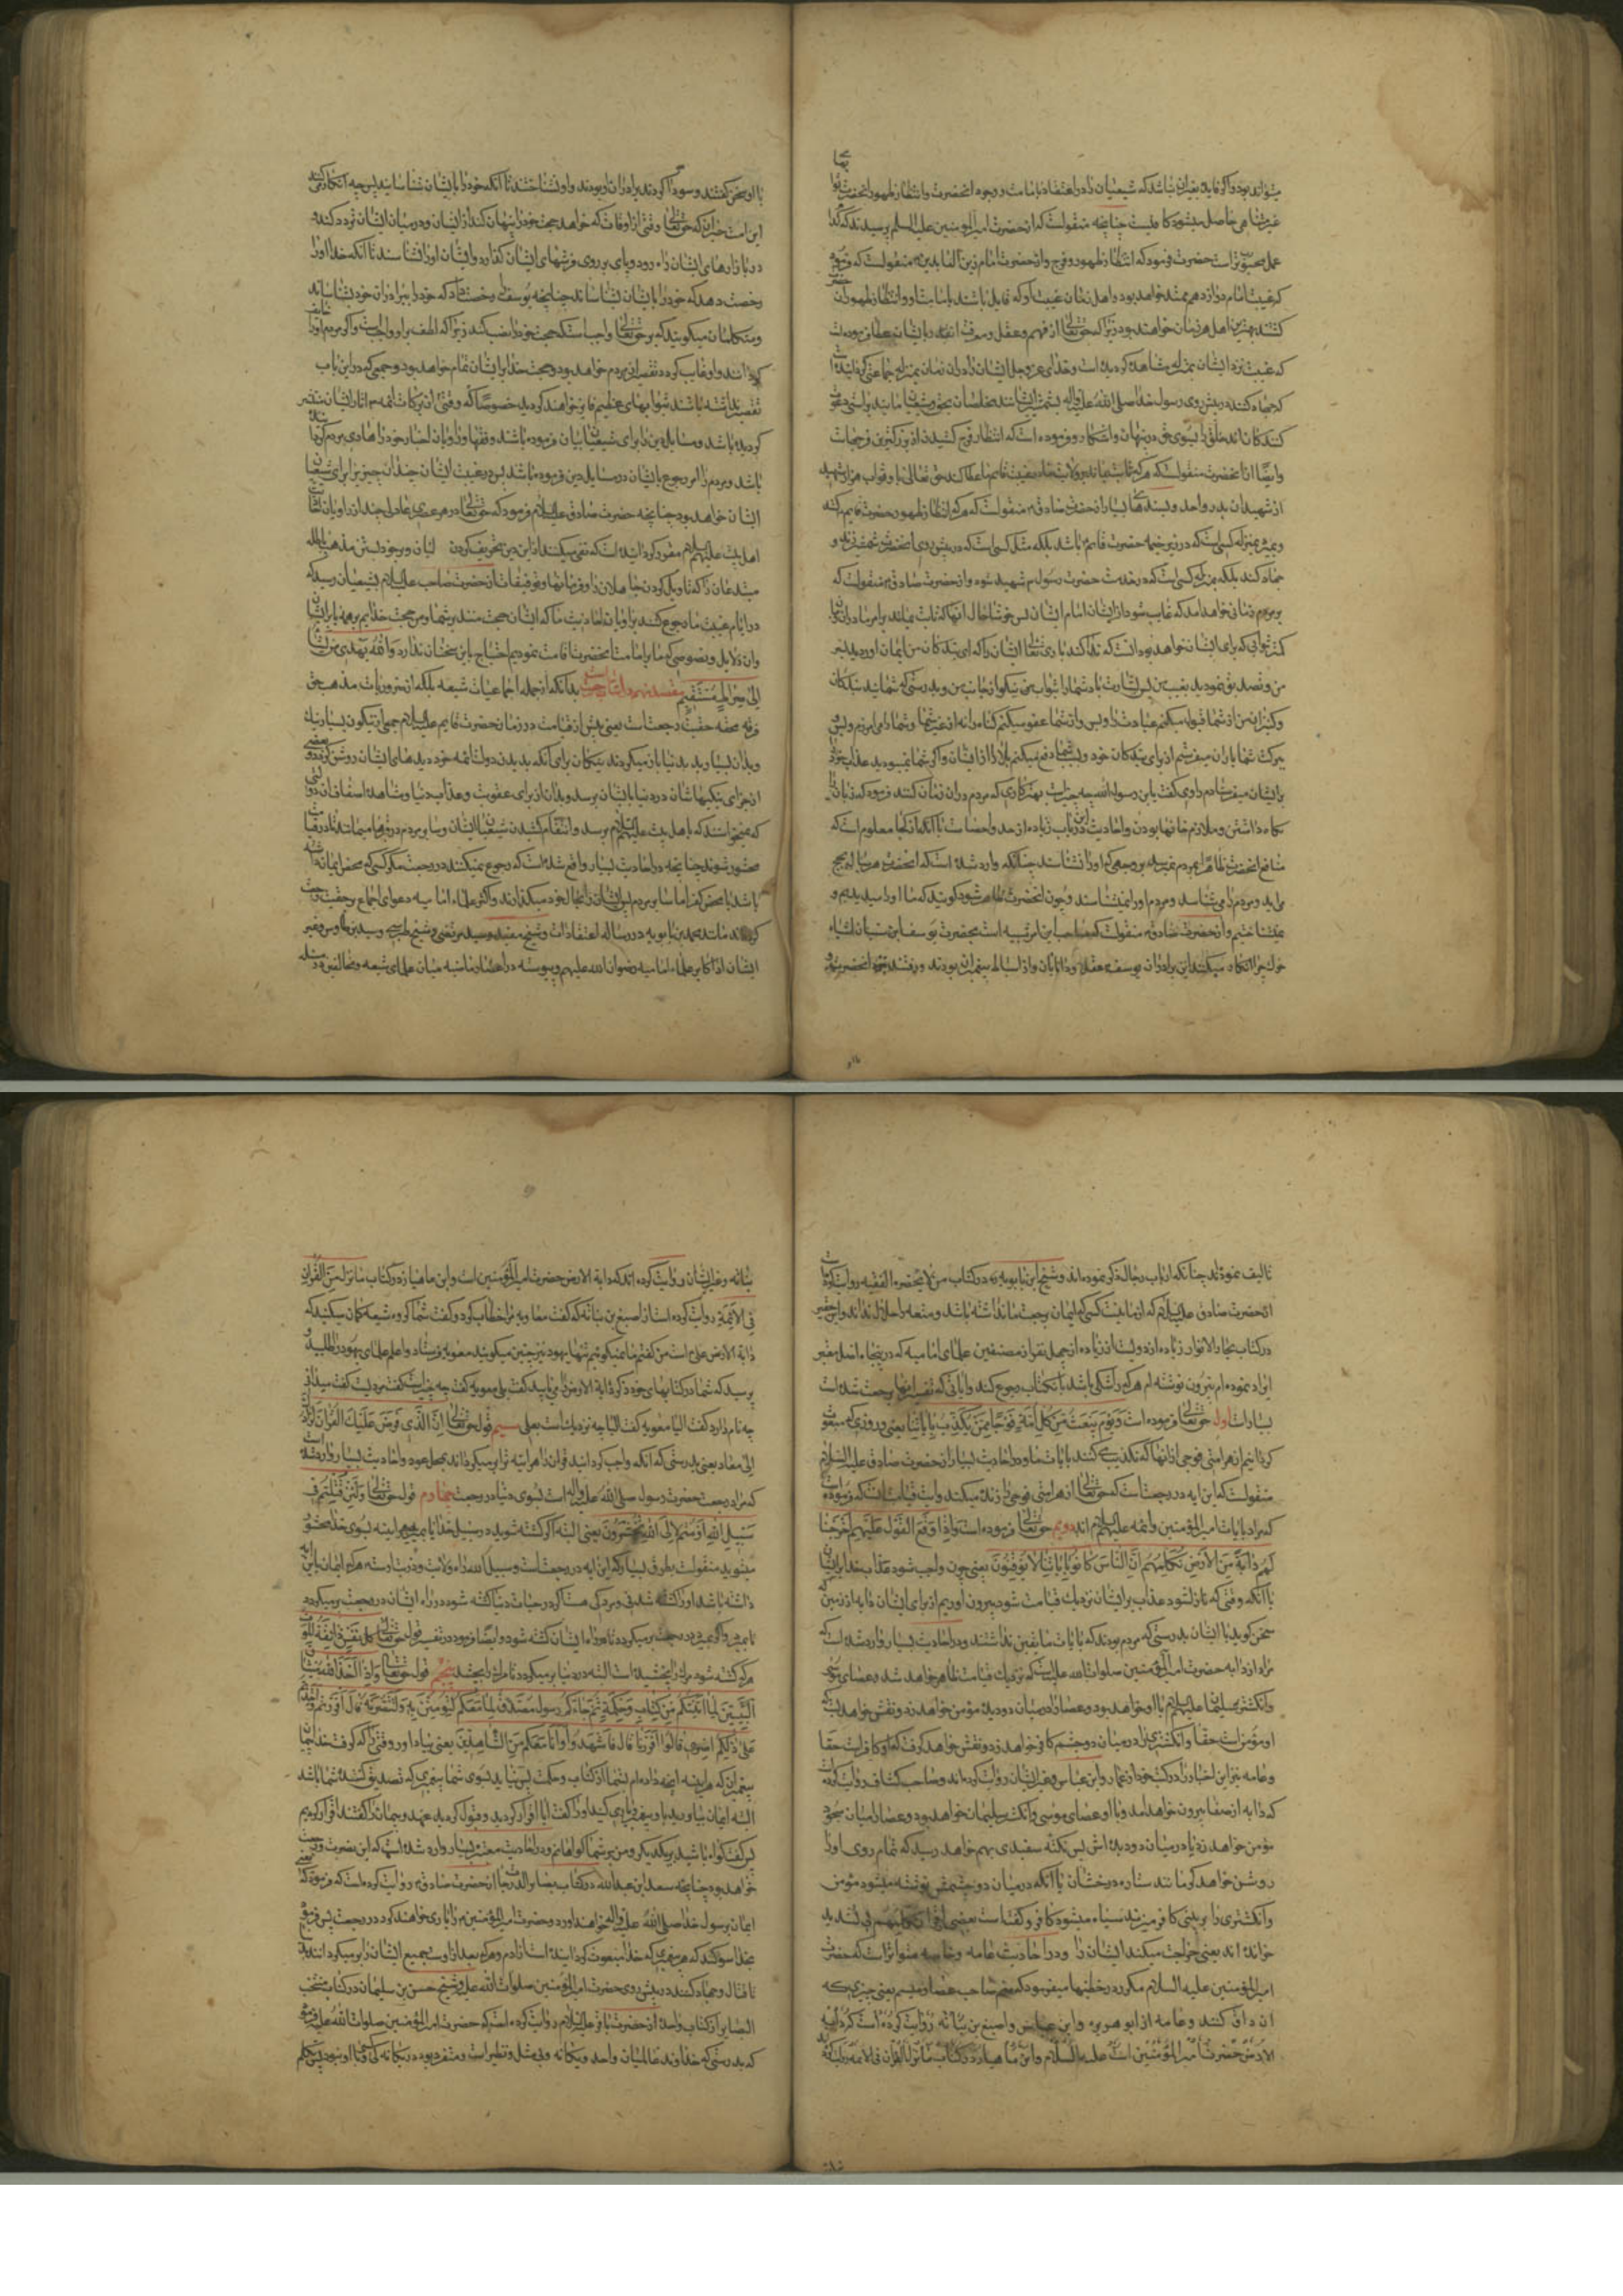 میتواند بود و اگر فایده بغیر این نباشد که شیعیان را در اعتقاد بامامت و وجود آنحضرت و انتظار ظهور آنحضرت ثوابهای
غیر متناهی حاصل میشود کافیست چنانچه منقولست که از حضرت امیر المؤمنین علیه السلم پرسیدند که کدام
عمل محبوبتر است حضرت فرمود که انتظار ظهور و فرج و از حضرت امام زین العابدین منقولست که فرمود
که غیبت امام دوازدهم ممتد خواهد بود و اهل زمان غیبت او که قایل باشند بامامت او و انتظار ظهور آن حضرت
کشند بهترین اهل هر زمان خواهند بود زیرا که حق تعالی از فهم و عقل و معرفت آنقدر بایشان عطا فرموده است
که غیبت نزد ایشان بمنزله مشاهده گردیده است و خدای عز و جل ایشان را در آن زمان بمنزله جماعتی گردانیده است
که جهاد کنند در پیش روی رسول خدا صلی الله علیه و اله بشمشیر ایشانند مخلصان بحق و شیعیان ما براستی و دعوت
کنندگان اند خلق را بسوی حق در پنهان و آشکار و فرموده است که انتظار فرج کشیدن از بزرگترین فرجهاست
و ایضا از آنحضرت منقولست که هر که ثابت بماند بر ولایت ما در غیبت قایم ما عطا کند حق تعالی باو ثواب هزار شهید
از شهیدان بدر و احد و بسندهای بسیار از حضرت صادق منقولست که هر که انتظار ظهور حضرت قایم کشد
و بمیرد بمنزله کسی است که در زیر خیمه حضرت قائم باشد بلکه مثل کسی است که در پیش روی آنحضرت شمشیر زند و
جهاد کند بلکه بمنزله کسی است که در خدمت حضرت رسول شهید شود و از حضرت صادق منقولست که
بر مردم زمانی خواهد آمد که غایب شود از ایشان امام ایشان پس خوشا حال آنها که ثابت بمانند بر امر ما در آن زمان
کمتر ثوابی که برای ایشان خواهد بود آنست که ندا کند باری تعالی ایشان را که ای بندگان من ایمان آوردید بسر
من و تصدیق نمودید بغیب من پس بشارت باد شما را بثواب من نیکو از جانب من و بدرستی که شمائید بندگان
و کنیزان من از شما قبول میکنم عبادت را و بس و از شما عفو میکنم گناه را نه از غیر شما و شما را می آمرزم و بس
ببرکت شما باران میفرستم از برای بندگان خود و بسبب شما دفع میکنم بلاها را از ایشان و اگر شما نمیبودید عذاب خود را
بر ایشان میفرستادم راوی گفت یا بن رسول الله چه چیز است بهترین کاری که مردم در آن زمان کنند فرمود که زبان را
نگاه داشتن و ملازم خانها بودن و احادیث در این باب زیاده از حد و احصاست با آنکه از کجا معلوم است که
منافع آنحضرت ظاهرا بمردم نمیرسد بر وجهی که او را نشناسند چنانکه وارد شده است که آنحضرت هر سال بحج
می آید و مردم را می شناسد و مردم او را نمیشناسند و چون آنحضرت ظاهر شود گویند که ما او را میدیدیم و
نمیشناختیم و از حضرت صادق منقولست که صاحب این امر شبیه است بحضرت یوسف
چرا انکار میکنند این را برادران یوسف عقلا و دانایان و از اسباط پیغمبران بودند و رفتند بنزد آنحضرت و
با او سخن گفتند و سودا کردند برادران او بودند و او را نشناختند تا آنکه خود را بایشان شناسانید پس چه انکار میکنند
این امت حیران که حق تعالی وقتی از اوقات که خواهد حجت خود را پنهان کند از ایشان و در میان ایشان تردد کند
در بازارهای ایشان راه رود و پای بر روی فرشهای ایشان گذارد و ایشان او را نشناسند تا آنکه خدا او را
رخصت دهد که خود را بایشان بشناساند چنانچه یوسف را رخصت داد که خود را ببرادران خود بشناساند
و متکلمان میگویند که بر حق تعالی واجب است که حجت خود را نصب کند زیرا که لطف بر او واجبست و اگر مردم او را خایف
گردانند و او غایب گردد تقصیر از مردم خواهد بود و حجت خدا بر ایشان تمام خواهد بود و جمعی که در این باب
تقصیر نداشته باشند بثوابهای عظیم فایز خواهند گردید خصوصا که وقتی از برکات ائمه و آثار ایشان منتشر
گردیده باشد و مسایل دین را برای شیعیان بیان فرموده باشند و فقها و راویان اخبار خود را هادی مردم گردانیده
باشند و مردم را امر رجوع بایشان در مسایل دین فرموده باشند پس در غیبت ایشان چندان حیرتی برای شیعیان
ایشان نخواهد بود چنانچه حضرت صادق علیه السلام فرمود که حق تعالی در هر عصری عادلی چند از راویان
اهل بیت علیهم السلام مقرر گردانیده است که نفی میکنند از این دین تحریف کردن غالیان و بر خود بستن مذهب باطله
مبتدعان را که تاویل کردن جاهلان را و فرمانها و توقیعات از حضرت صاحب علیه السلام بشیعیان رسید که
در ایام غیبت ما رجوع کنند براویان احادیث ما که ایشان حجت منند بر شما و من حجت خدایم بر همه
و از دلایل و نصوصی که ما بر امامت آنحضرت اقامت نمودیم احتیاج باین سخنان ندارد و الله یهدی من یشاء
الی صراط مستقیم مقصد نهم در اثبات رجعت بدانکه از جمله اجماعیات شیعه بلکه از ضروریات مذهب حق
فرقه محقه حقیت رجعت است یعنی پیش از قیامت در زمان حضرت قایم علیه السلام جمعی از نیکان بسیار نیک
و بدان بسیار بد بدنیا باز میگردند نیکان برای آنکه بدیدن دولت ائمه خود دیدهای ایشان روشن گردد و بعضی
از جزای نیکیهاشان در دنیا بایشان برسد و بدان از برای عقوبت و عذاب دنیا و مشاهده اضعاف آن دولتی
که نمیخواستند که باهل بیت علیهم السلام برسد و انتقام کشیدن شیعیان از ایشان و سایر مردم در قبرها میمانند تا در قیامت
محشور شوند چنانچه در احادیث بسیار واقع شده است که رجوع نمیکنند در رجعت مگر کسی که محض ایمان داشته
باشد یا محض کفر اما سایر مردم پس ایشان را بحال خود میگذارند و اکثر علماء امامیه دعوای اجماع بر حقیت رجعت
کرده اند مانند محمد بن بابویه در رساله اعتقادات و شیخ مفید و سید مرتضی و شیخ طبرسی و سید بن طاوس و غیر
ایشان از اکابر علماء امامیه رضوان الله علیهم و پیوسته در اعصار ماضیه میان علمای شیعه و مخالفین در این مسئله
تالیف نموده اند چنانکه ارباب رجال ذکر نموده اند و شیخ ابن بابویه در کتاب من لا یحضره الفقیه روایت کرده است
از حضرت صادق علیه السلام که از ما نیست کسی که ایمان برجعت ما نداشته باشد و متعه را حلال نداند و این حقیر
در کتاب بحار الانوار زیاده از دویست حدیث از زیاده از چهل نفر از مصنفین علمای امامیه که در پنجاه اصل معتبر
ایراد نموده ام بیرون نوشته ام هر که را شکی باشد بآن کتاب رجوع کند و آیاتی که تفسیر آنها برجعت شده است
بسیار است اول حق تعالی فرموده است و یوم نبعث من کل امة فوجا ممن یکذب بآیاتنا یعنی روزی که مبعوث
گردانیم از هر امتی فوجی از آنها که تکذیب می کنند بآیات ما و در احادیث بسیار از حضرت صادق علیه السلام
منقولست که این آیه در رجعت است که حق تعالی از هر امتی فوجی را زنده میکند و آیت قیامت آنست که فرموده است
که مراد بآیات امیر المؤمنین و ائمه علیهم السلام اند دویم حق تعالی فرموده است و اذا وقع القول علیهم اخرجنا
لهم دابة من الارض تکلمهم ان الناس کانوا بآیاتنا لا یوقنون یعنی چون واجب شود عذاب خدا بر ایشان
یا آنکه وقتی که نازل شود عذاب بر ایشان نزدیک قیامت شود بیرون آوریم از برای ایشان دابه از زمین که
سخن گوید با ایشان بدرستی که مردم بودند که بآیات ما یقین نداشتند و در احادیث بسیار وارد شده است که
مراد از دابه حضرت امیر المؤمنین صلوات الله علیه است که نزدیک قیامت ظاهر خواهد شد و عصای موسی
و انگشتر سلیمان علیه السلام با او خواهد بود و عصا را در میان دو دیده مؤمن خواهد زد و نقش خواهد بست که
او مؤمن است حقا و انگشتری را در میان دو چشم کافر خواهد زد و نقش خواهد گرفت که او کافر است حقا
و عامه نیز این اخبار را در کتب خود از عمار و ابن عباس و غیر ایشان روایت کرده اند و صاحب کشاف روایت کرده
که دابه از صفا بیرون خواهد آمد و با او عصای موسی و انگشتر سلیمان خواهد بود و عصا را میان سجود
مؤمن خواهد زد یا در میان دو دیده اش پس نکته سفیدی بهم خواهد رسید که تمام روی او را
روشن خواهد کرد مانند ستاره درخشان یا آنکه در میان دو چشمش نوشته میشود مؤمن
و انگشتری را بر بینی کافر میزند سیاه میشود کافر و گفته است بعضی از قراء تکلمهم بی تشدید
خوانده اند یعنی جراحت میکند ایشان را و در احادیث عامه و خاصه متواتر است که حضرت
امیر المؤمنین علیه السلام مکرر در خطبها میفرمود که منم صاحب عصا و میسم یعنی چیزی که
آن داغ کنند و عامه از ابو هریره و ابن عباس و اصبغ بن نباته روایت کرده است که دابة
الارض حضرت امیر المؤمنین است علیه السلام و ابن ماهیار در کتاب ما نزل القرآن فی الائمه روایت کرده
نباته و غیر ایشان روایت کرده اند که دابة الارض حضرت امیر المؤمنین است و ابن ماهیار در کتاب ما نزل من القرآن
فی الائمة روایت کرده است از اصبغ بن نباته که گفت معاویه مرا خطاب کرد و گفت شما گروه شیعه گمان میکنید که
دابة الارض علی است من گفتم ما نمیگوئیم تنها یهود نیز چنین میگویند معویه فرستاد و اعلم علمای یهود را طلبید و
پرسید که شما در کتابهای خود ذکر دابة الارض را می یابید گفت بلی معویه گفت چه چیز است گفت مردیست گفت میدانی
چه نام دارد گفت الیا معویه گفت الیا چه نزدیک است بعلی سیم قول حق تعالی ان الذی فرض علیک القرآن لرادک
الی معاد یعنی بدرستی که آنکه واجب گردانید قرآن را هراینه ترا بر میگرداند بمحل عود و احادیث بسیار وارد شده است
که مراد رجعت حضرت رسول صلی الله علیه و اله است بسوی دنیا در رجعت چهارم قول حق تعالی و لئن قتلتم فی
سبیل الله او متم لالی الله تحشرون یعنی البته اگر کشته شوید در سبیل خدا یا بمیرید هراینه بسوی خدا محشور
میشوید منقولست بطرق بسیار که این آیه در رجعت است و سبیل الله راه ولایت و ذریه اوست هر که ایمان باین آیه
داشته باشد او را کشته شدنی و مردنی هست اگر در حیات دنیا کشته شود در راه ایشان در رجعت بر میگردد
تا بمیرد و اگر بمیرد در رجعت بر میگردد تا در راه ایشان کشته شود و ایضا فرمود در تفسیر قول حق تعالی کل نفس ذائقة الموت
هر که کشته شود مرگ را نچشیده است البته در دنیا بر میگردد تا مرگ را بچشد پنجم قول حق تعالی و اذ اخذ الله میثاق
النبیین لما آتیتکم من کتاب و حکمة ثم جاءکم رسول مصدق لما معکم لتؤمنن به و لتنصرنه قال اقررتم و اخذتم
علی ذلکم اصری قالوا اقررنا قال فاشهدوا و انا معکم من الشاهدین یعنی بیاد آور وقتی را که گرفت خدا پیمان
پیغمبران که هراینه آنچه داده ام بشما از کتاب و حکمت پس بیاید بسوی شما پیغمبری که تصدیق کننده شما باشد
البته ایمان بیاورید باو و یاری کنید او را گفت آیا اقرار کردید و قبول کردید عهد و پیمان را گفتند اقرار کردیم
پس گفت گواه باشید بر یکدیگر و من بر شما گواهانم و در احادیث معتبر بسیار وارد شده است که این نصرت در رجعت
خواهد بود چنانچه سعد ابن عبد الله در کتاب بصائر الدرجات از حضرت صادق روایت کرده است که فرمود که یعنی
ایمان برسول خدا صلی الله علیه و اله خواهند آورد و حضرت امیر المؤمنین را یاری خواهند کرد در رجعت پس فرمود
بخدا سوگند که هر پیغمبری که خدا مبعوث گردانیده است از آدم و هر که بعد از اوست جمیع ایشان را بر میگرداند بدنیا
تا قتال و جهاد کنند در پیش روی حضرت امیر المؤمنین صلوات الله علیه و شیخ حسن بن سلیمان در کتاب منتخب
البصایر از کتاب واحده از حضرت باقر علیه السلام روایت کرده است که حضرت امیر المؤمنین صلوات الله علیه فرمود
که بدرستی که خداوند عالمیان واحد و یگانه و بی مثل و نظیر است و متفرد بود در یگانگی و کسی با او نبود پس تکلم